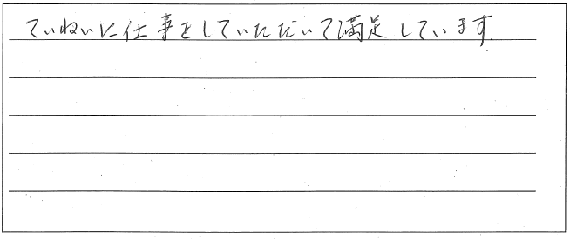 ていねいに仕事をしていただいて満足しています